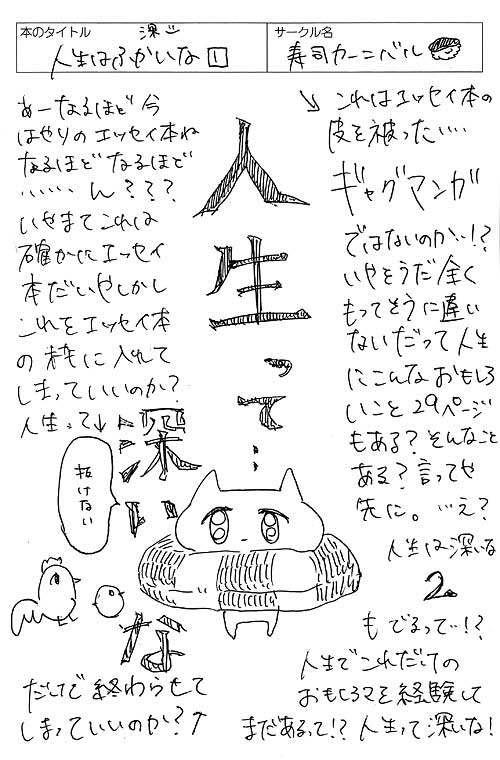 本のタイトル
深い
人生はふかいな 1
サークル名
寿司カーニバル
あーなるほど今
はやりのエッセイ本ね
なるほどなるほど
……ん???
いやまてこれは
確かにエッセイ
本だいやしかし
これをエッセイ本
の枠に入れて
しまっていいのか?
人生って↓
深いな
だけで終わらせて
しまっていいのか?↑
人生って…
抜けない
↘これはエッセイ本の
皮を被った……
ギャグマンガ
ではないのか…!?
いやそうだ全く
もってそうに違い
ないだって人生
にこんなおもしろ
いこと29ページ
もある?そんなこと
ある?言ってや
先に。…え?
人生は深いな
2。
もでるって…!?
人生でこれだけの
おもしろさを経験して
まだあるって!?人生って深いな!